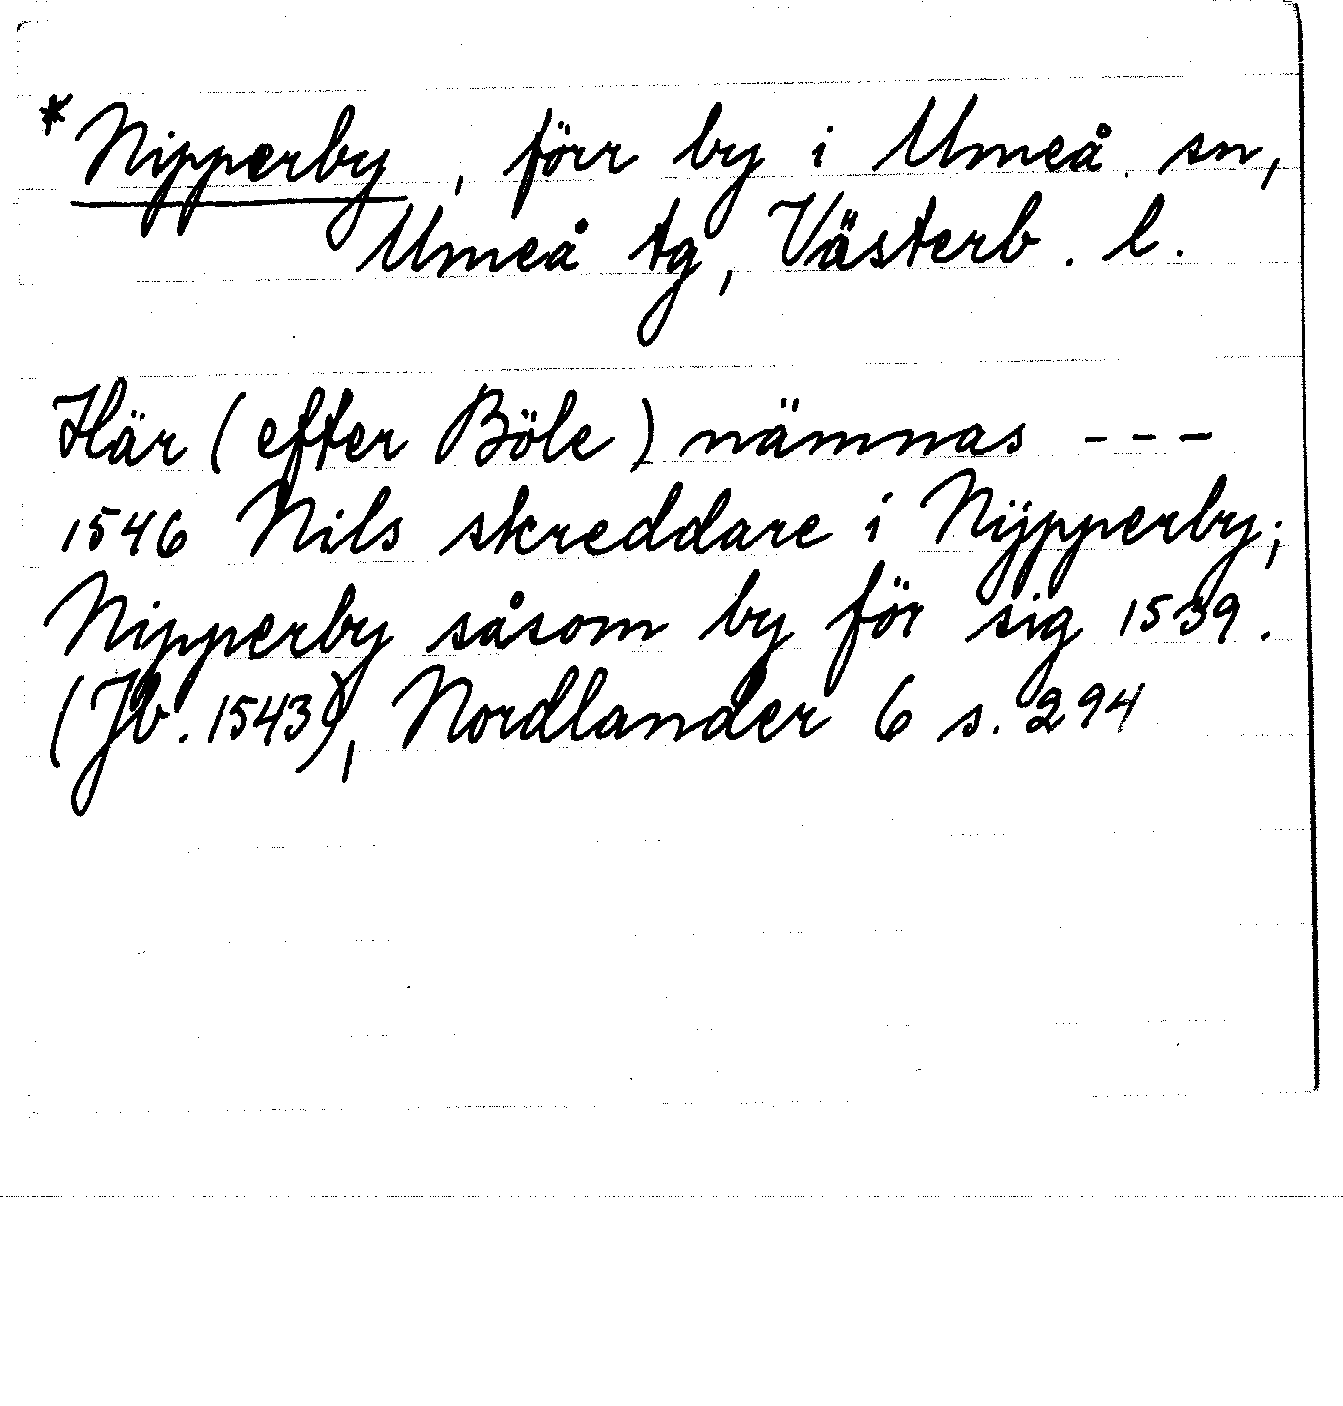 *Nipperby, förr by i Umeå sn,
Umeå tg, Västerb. l.
Här (efter Böle) nämnas ---
1546 Nils skreddare i Nijpperby;
Nipperby såsom by för sig 1539.
(Jb. 1543), Nordlander 6 s. 294